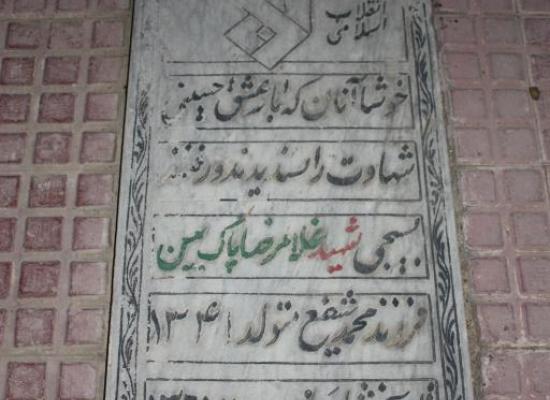 انقلاب
اسلامی
خوشا آنان که با عشق حسینی
شهادت را پسندیدند و رفتند
بسیجی شهید غلامرضا پاک بین
فرزند محمد شفیع متولد ۱۳۴۱